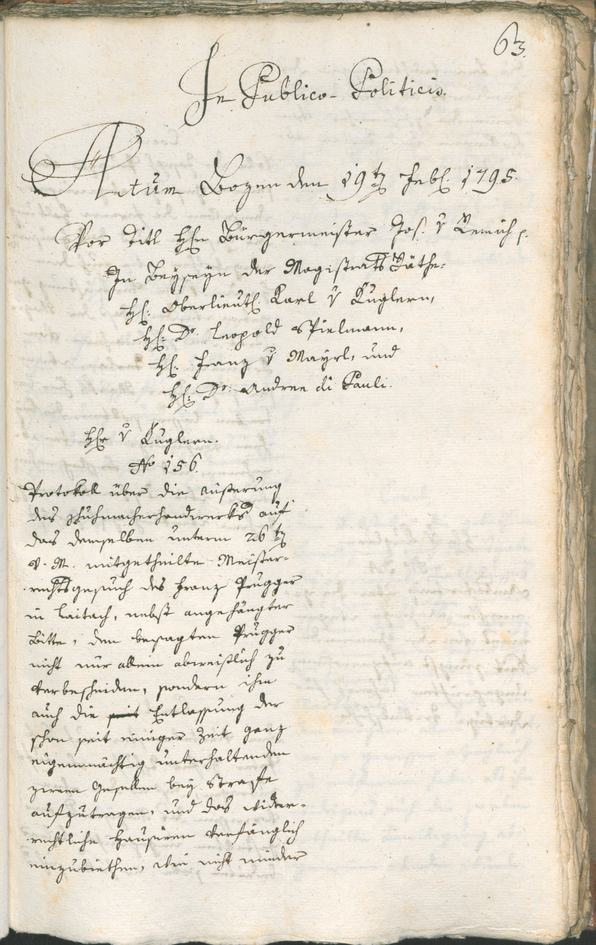 63.
In Publico-Politicis.
Actum Bozen den 19t Febl. 1795.
Vor Titl Hln Bürgermeister Jos. v Remich.
In Beyseyn der Magistrats Räthe:
Hl. Oberlieutl. Karl v Kuglern,
Hl. Dr. Leopold Spielmann,
Hl. Franz v Mayrl, und
Hl. Dr. Andree di Pauli.
Hl v Kuglern.
No 156.
Protokoll über die Äußerung
des Schuhmacherhandwerks auf
das demselben unterm 26t
v. M. mitgetheilte Meister-
rechtsgesuch des Franz Prugger
in Laitach, nebst angehängter
Bitte, den besagten Prugger
nicht nur allein abweißlich zu
verbescheiden, sondern ihm
auch die Entlassung der
schon seit einiger Zeit ganz
eigenmächtig unterhaltenden
zween Gesellen bey Strafe
aufzutragen, und das wider-
rechtliche Hausiren verfänglich
einzubiethen, wie nicht minder